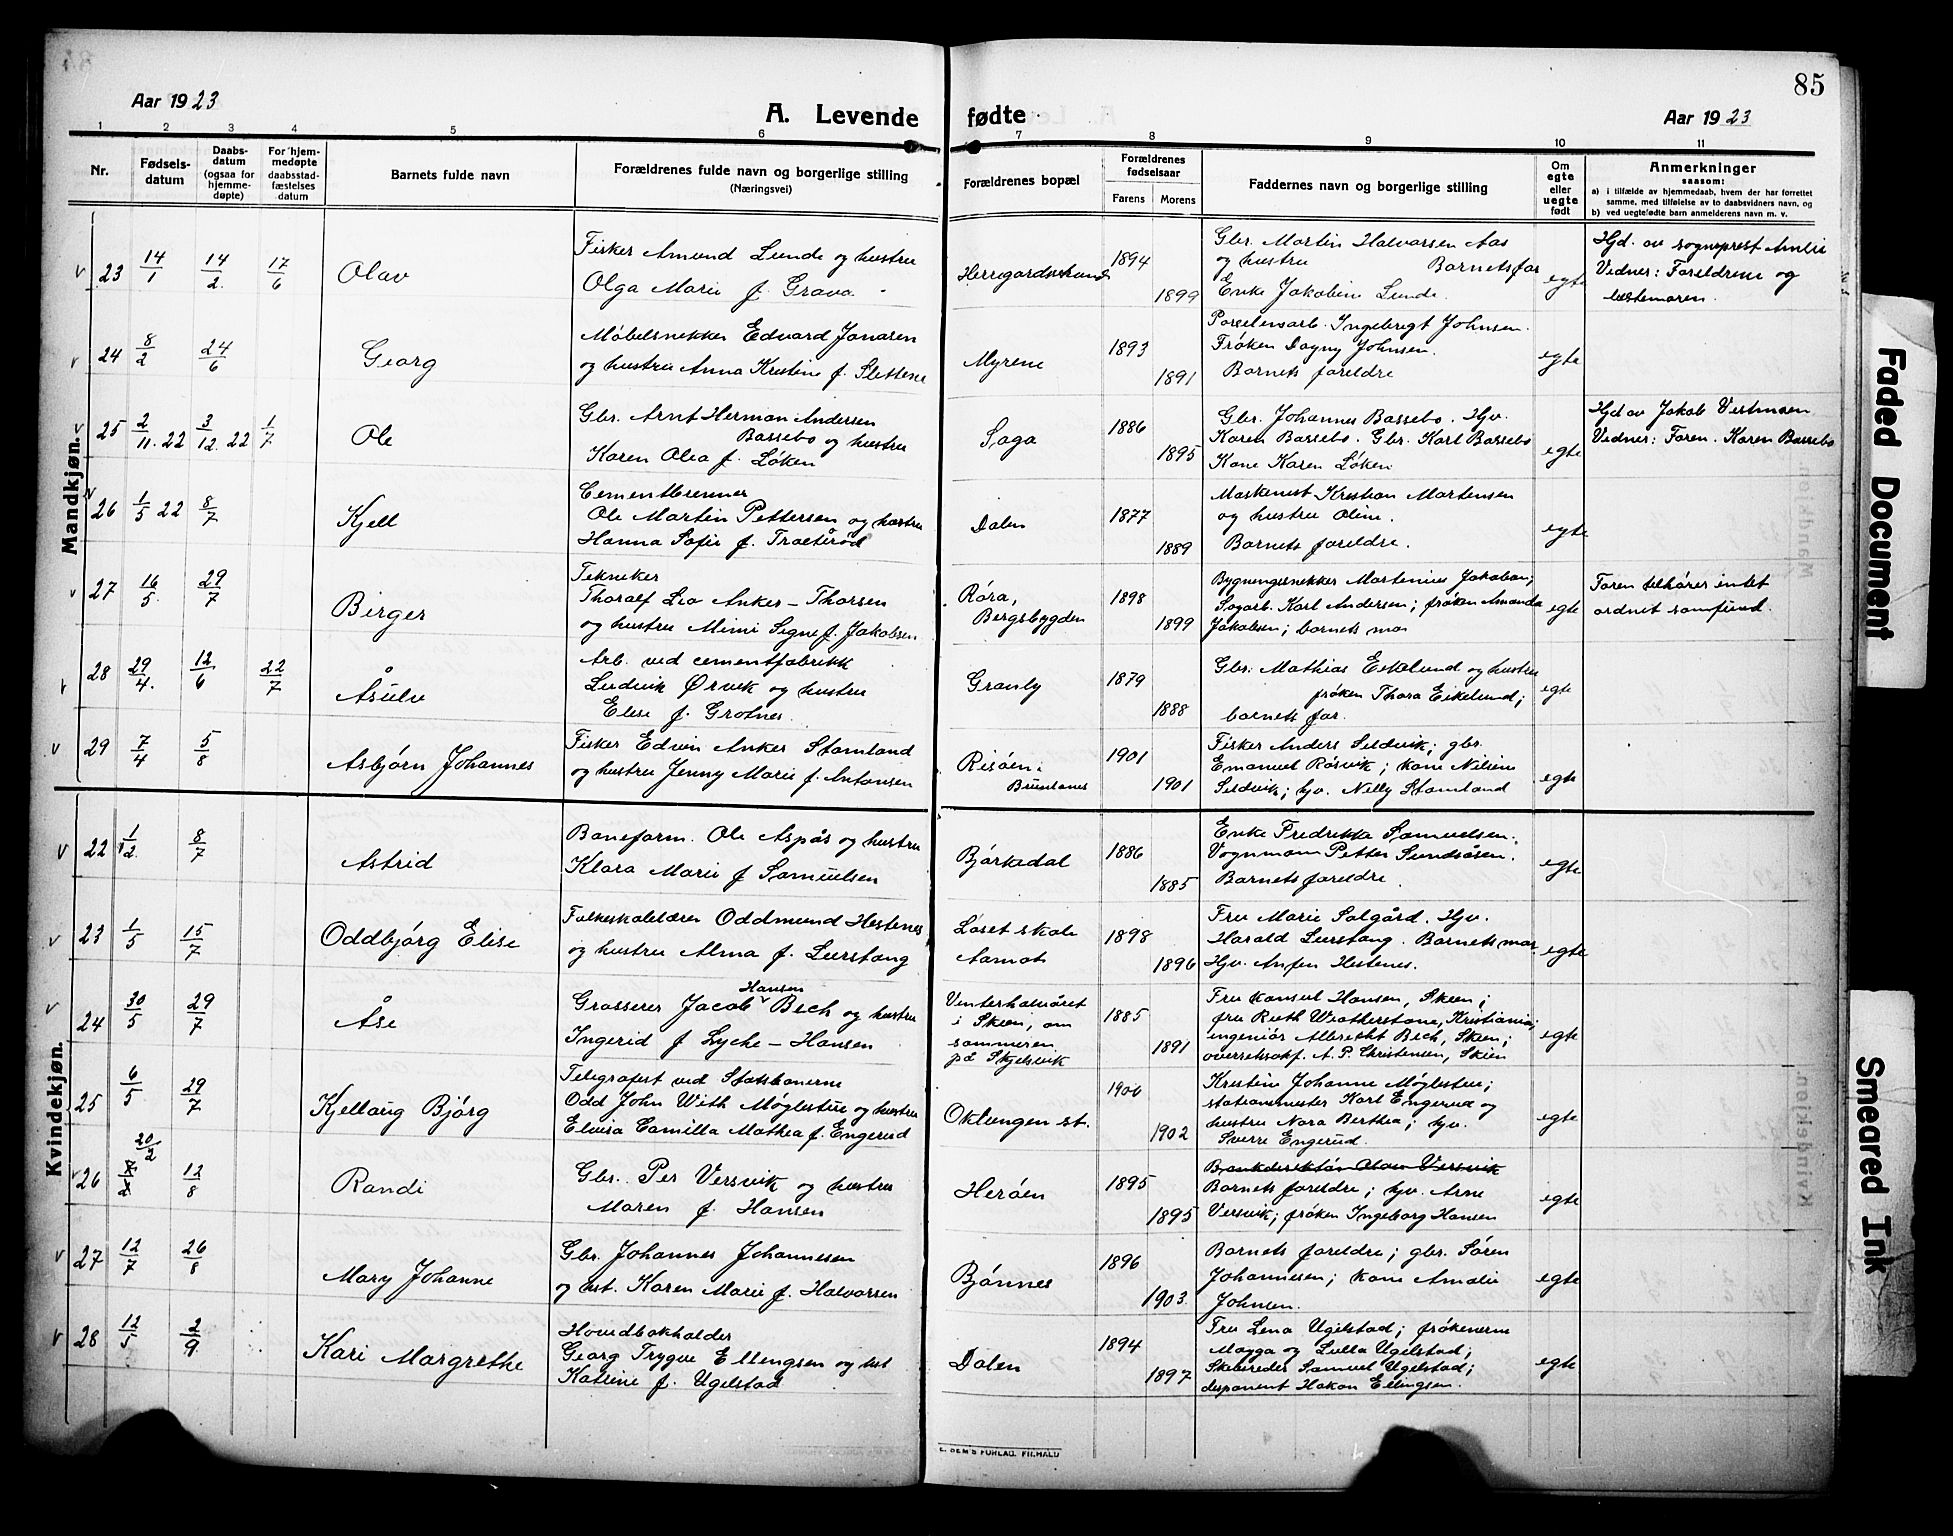 85
Aar 1923
A. Levende fødte
Aar 1923
1 2 3 4 5 6 7 8 9 10 11
Nr.
Fødsels-
datum
Daabs-
datum
(ogsaa for
hjemme-
døpte)
For hjem-
medøpte
daabsstad-
fæstelses
datum
Barnets fulde navn
Forældrenes fulde navn og borgerlige stilling
(Næringsvei)
Forældrenes bopæl
Forældrenes
fødselsaar
Farens Morens
Faddernes navn og borgerlige stilling
Om
egte
eller
uegte
født
Anmerkninger
saasom:
a) i tilfælde av hjemmedaab, hvem der har forrettet
samme, med tilføielse av to daabsvidners navn, og
b) ved uegtefødte barn anmelderens navn m. v.
Mandkjøn.
v 23 14/1 14/2 17/6
Olav
Fisker Amund Lunde og hustru
Olga Marie f. Grava
1894
1899
Gbr. Martin Halvorsen Aas
og hustru Barnets far
Enke Jakobine Lunde.
egte
Hjd. av sogneprest Amlie
Vidner: Foreldrene og
bestemoren.
v 24 8/2 24/6
Georg
Møbelsnekker Edvard Jonasen
og hustru Anna Kristine f. Slettene
Myrene
1893
1891
Porselensarb. Ingebregt Johnsen.
Frøken Dagny Johnsen.
Barnets foreldre
egte
v 25 2/11 22 3/12 22 1/7
Ole
Gbr. Arnt Herman Andersen
Bassebo og hustru
Karen Olea f. Løken
Saga
1886
1895
Gbr. Johannes Bassebo. Hjv.
Karen Bassebo. Gbr. Karl Bassebo
Kone Karen Løken
egte
Hjd av Jakob Vestmoen
Vidner: Faren. Karen Bassebo
26 1/5 22 8/7
Kjell
Cementbrenner
Ole Martin Pettersen og hustru
Hanna Sofie f. Trollerød
Dalen
1877
1889
Maskinist Kristian Martensen
og hustru Oline.
Barnets foreldre.
egte
v 27 16/5 29/7
Birger
Tekniker
Thoralf Leo Anker-Thorsen
og hustru Mimi Signe f. Jakobsen
Røra,
Bergsbygden
1898
1899
Bygningssnekker Martinius Jakobsen;
Sagarb. Karl Andersen; frøken Amanda
Jakobsen; barnets mor
egte
Faren tilhører intet
ordnet samfund.
v 28 29/4 12/6 22/7
Åsulv
Arb. ved cementfabrikk
Ludvik Ørvik og hustru
Elise f. Grotnes.
Granly
1879
1888
Gbr. Mathias Eikelund og hustru
frøken Thora Eikelund;
barnets far.
egte
v 29 7/4 5/8
Asbjørn Johannes
Fisker Edvin Anker Stamland
og hustru Jenny Marie f. Antonsen
Risøen
Brunlanes
1901
1901
Fisker Anders Sildvik; gbr.
Emanuel Røsvik; kone Niline
Sildvik; hjv. Nilly Stamland
egte
Kvindekjøn.
v 22 1/2 8/7
Astrid
Baneform. Ole Aspås og hustru
Klara Marie f Samuelsen
Bjørkedal
1886
1885
Enke Fredrikka Samuelsen.
Vognmann Petter Sundsåsen.
Barnets foreldre.
egte
v 23 1/5 15/7
Oddbjørg Elise
Folkeskolelærer Oddmund Hestenes
og hustru Alma f. Lurstang
Løset skole
Aamot
1898
1896
Fru Marie Solgård. Hjv.
Harald Lurstang. Barnets mor.
Hjv. Anfin Hestenes.
egte
v 24 30/5 29/7
Åse
Hansen
Grosserer Jacob Bech og hustru
Ingerid f Lyche-Hansen
Vinterhalvåret
i Skien, om
sommeren
på Skjelsvik
1885
1891
Fru konsul Hansen, Skien;
fru Ruth Weatherstone, Kristiania;
ingeniør Albrecht Bech, Skien;
overretssakf. A. P. Christensen, Skien
egte
25 6/5 29/7
Kjellaug Bjørg
Telegrafist ved Statsbanerne
Odd John With Møglestue og hustru
Elvira Camilla Mathea f. Engerud
Oklungen st.
1900
1902
Kristine Johanne Møglestue;
stationsmester Karl Engerud og
hustru Nora Berthea; hjv.
Sverre Engerud.
egte
20/2
v 26 12/8
Randi
Gbr. Per Versvik og hustru
Maren f. Hansen
Herøen
1895
1895
Bankdirektør Olav Versvik
Barnets foreldre; hjv. Arne
Versvik; frøken Ingeborg Hansen
egte
v 27 12/7 26/8
Mary Johanne
Gbr. Johannes Johannesen
og hst. Karen Marie f. Halvorsen
Bjønnes
1896
1903
Barnets foreldre; gbr. Søren
Johannesen; kone Amalie
Johnsen.
egte
v 28 12/5 2/9
Kari Margrethe
Hovedbokholder
Georg Trygve Ellingsen og hst
Katrine f. Ugelstad
Dalen
1894
1897
Fru Lena Ugelstad; frøknerne
Magga og Lulla Ugelstad;
Skibsreder Samuel Ugelstad;
disponent Hakon Ellingsen.
egte
Faded Document
Smeared Ink